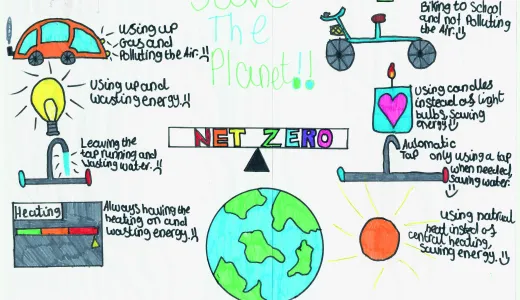 The
Planet!!
Using up
Gas and
Polluting the Air.
Biking to School
and not Polluting
the Air.
Using up and
wasting energy.
Using candles
instead of light
bulbs, saving
energy
Leaving the
tap running and
wasting water.
NET ZERO
Automatic
Tap only using a tap
when needed,
saving water.
Heating
Always having the
heating on and
wasting energy.
Using natrual
heat insted of
central heating,
saving energy.